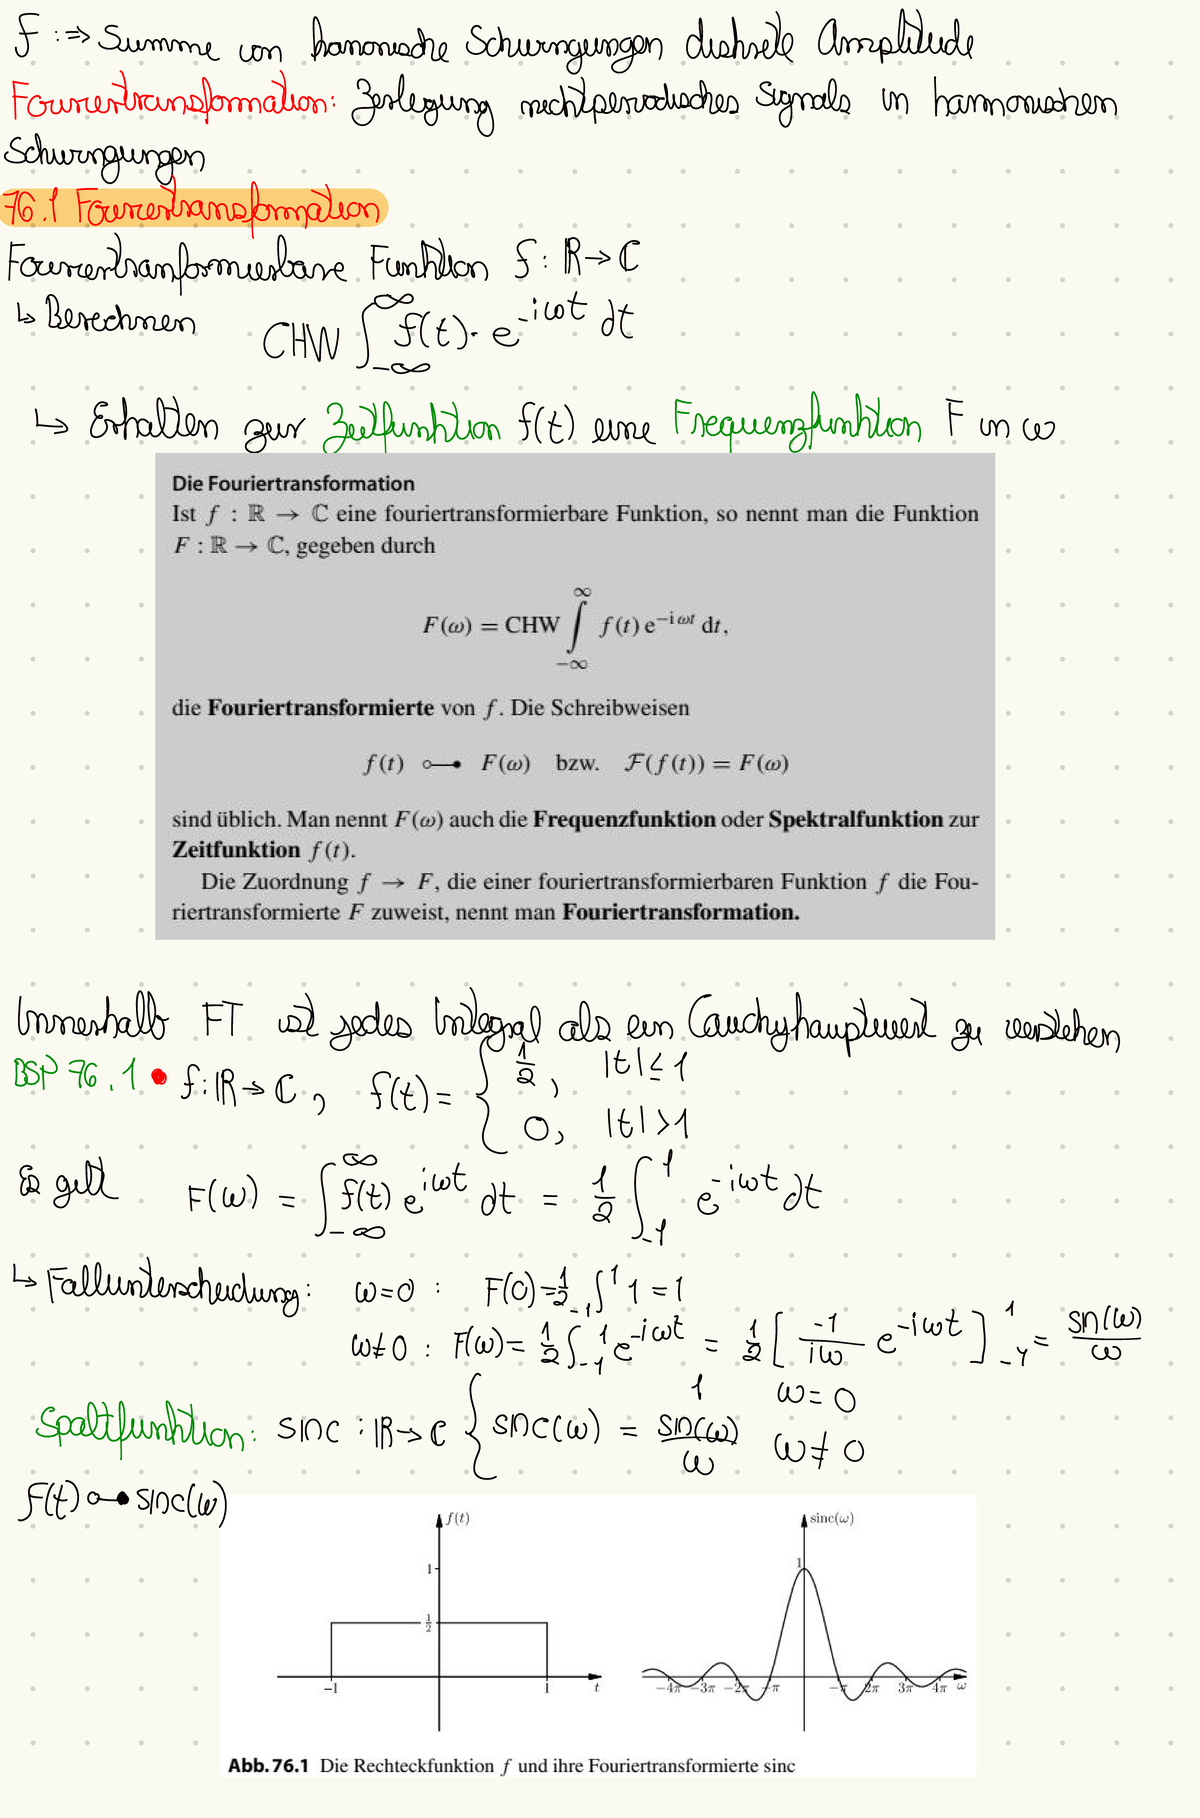 f :⇒ Summe von harmonische Schwingungen diskrete Amplitude
Fouriertransformation: Zerlegung nichtperiodisches Signals in harmonischen
Schwingungen
76.1 Fouriertransformation
Fouriertranformierbare Funktion f: ℝ→ℂ
↳ Berechnen CHW ∫_{-∞}^{∞} f(t)· e^{-iωt} dt
↳ Erhalten zur Zeitfunktion f(t) eine Frequenzfunktion F in ω
Die Fouriertransformation
Ist f : ℝ → ℂ eine fouriertransformierbare Funktion, so nennt man die Funktion
F : ℝ → ℂ, gegeben durch
F(ω) = CHW ∫_{-∞}^{∞} f(t) e^{-iωt} dt,
die Fouriertransformierte von f. Die Schreibweisen
f(t) ○—● F(ω) bzw. ℱ(f(t)) = F(ω)
sind üblich. Man nennt F(ω) auch die Frequenzfunktion oder Spektralfunktion zur
Zeitfunktion f(t).
Die Zuordnung f → F, die einer fouriertransformierbaren Funktion f die Fou-
riertransformierte F zuweist, nennt man Fouriertransformation.
Innerhalb FT ist jedes Integral als ein Cauchyhauptwert zu verstehen
BSP 76.1 • f: ℝ→ℂ, f(t) = { 1/2, |t| ≤ 1
0, |t| > 1
Es gilt F(ω) = ∫_{-∞}^{∞} f(t) e^{iωt} dt = 1/2 ∫_{-1}^{1} e^{-iωt} dt
↳ Fallunterscheidung: ω=0 : F(0)=1/2 ∫_{-1}^{1} 1 = 1
ω≠0 : F(ω)= 1/2 ∫_{-1}^{1} e^{-iωt} = 1/2 [ -1/iω e^{-iωt} ]_{-1}^{1} = sin(ω)/ω
Spaltfunktion: sinc : ℝ→ℂ { sinc(ω) = 1 ω=0
sin(ω)/ω ω≠0
f(t) ○—● sinc(ω)
f(t) sinc(ω)
1 1
1/2
−1 1 t −4π −3π −2π −π −π 2π 3π 4π ω
Abb. 76.1 Die Rechteckfunktion f und ihre Fouriertransformierte sinc